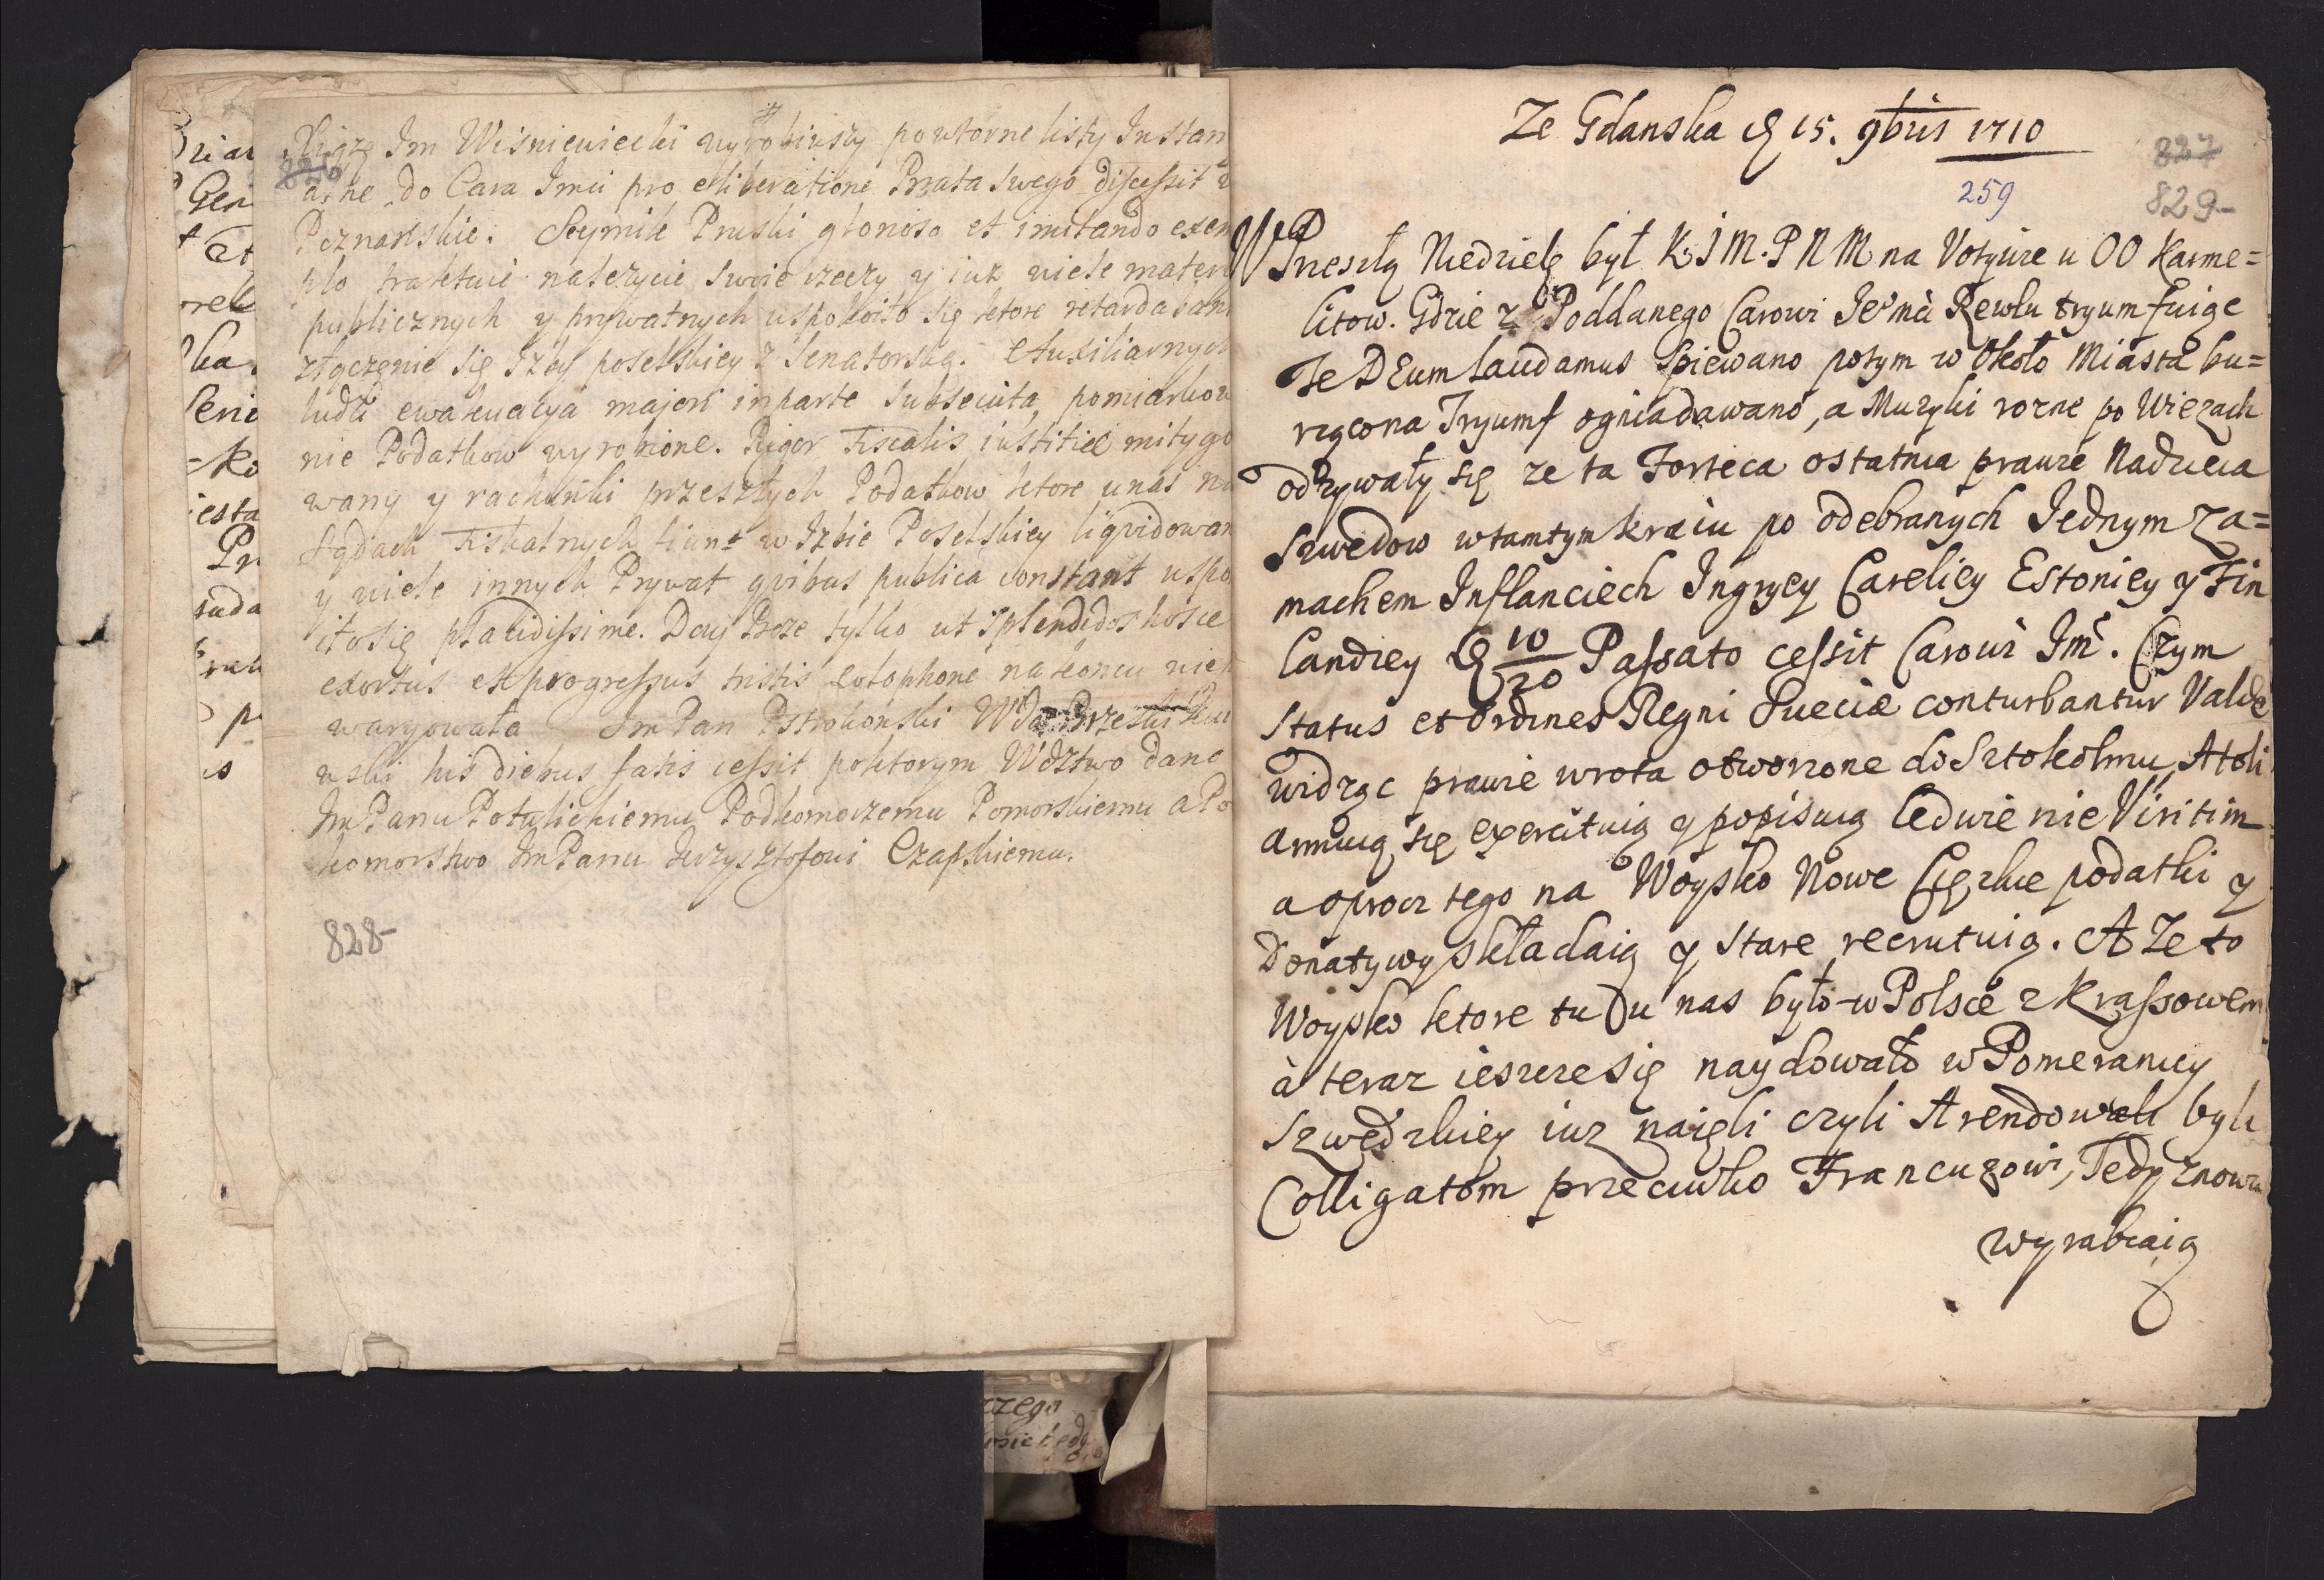 Xiążę Im Wiśniewiecki wyrobiwszy powtorne listy Instan
do Cara Imci pro eliberatione Brata swego discessit
Poznańskie. Seymik Pruski gloriose et imitando exem
plo traktuie należycie swoie rzeczy y iuż wiele matery
publicznych y prywatnych uspokoiło się ktore retardabant
złączenie się Izby poselskiey z Senatorską. Auxiliarnych
ludzi ewakuacya majori in parte subsecuta, pomiarkow
nie Podatkow wyrobione. Rigor Fiscalis iustitiæ mitygo
wany y rachunki przeszłych Podatkow ktore unas na
Sądach Fiskalnych fiunt w Izbie Poselskiey liqvidowan
y wiele innych Prywat qvibus publica constant uspo
iło się placidissime. Day Boże tylko ut splendidos hosce
exortus et progressus tristis na koncu nie
waryowała Im Pan Pstrokoński WDa Brzeski Kui
wski his diebus fatis cessit po ktorym Wdztwo dane
Im Panu Potulickiemu Podkomorzemu Pomorskiemu a Po
komorstwo Im Panu Krzysztofowi Czapskiemu.
828-
Ze Gdanska 15. 9bris 1710
827
259
829-
W Przeszłą Niedzielę był K J M. P N M na Votywie u OO Karme=
litow. Gdzie z Poddanego Carowi Rewlu tryumfuiąc
Te DEum laudamus Spiewano potym w Około Miasta bu=
rzą co na Tryumf ognia dawano, a Muzyki rozne po Wiezach
odzywały się ze ta Forteca ostatnia prawie Nadzieia
Szwedow w tamtym kraiu po odebranych Jednym za=
machem Inflanciech Ingryey Careliey Estoniey y Fin
landiey 10/20 Passato cessit Carowi Im. Czym
Status et Ordines Regni Sueciæ conturbantur Valde
widząc prawie wrota otworzone do Sztokolmu, A toli
armuią się exercituią y popisuią ledwie nie Viritim
a oprocz tego na Woysko Nowe Cięzkie podatki y
Donatywy składaią y Stare recrutuią. A Ze to
Woysko ktore tu u nas było w Polsce z Krassowem
à teraz ieszcze się naydowało w Pomeraniey
Szwedzkiey iuz naięli czyli Arendowali byli
Colligatom przeciwko Francuzowi, Tedy znowu
wyrabiaią